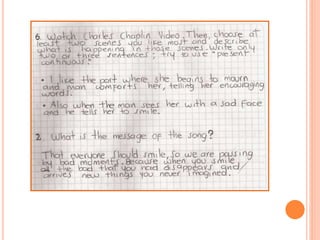 6. Watch Charles Chaplin Video. Then, choose at
least two scenes you like most and describe
what is happening in those scenes. Write only
two or three sentences; try to use "present
continuous".
• I like the part where she begins to mourn
and man comforts her, telling her encouraging
words.
• Also when the man sees her with a sad face
and he tells her to smile.
2. What is the message of the song?
That everyone should smile, so we are passing
by bad moments. Because when you smile
all the bad that you had disappears and
arrives new things you never imagined.